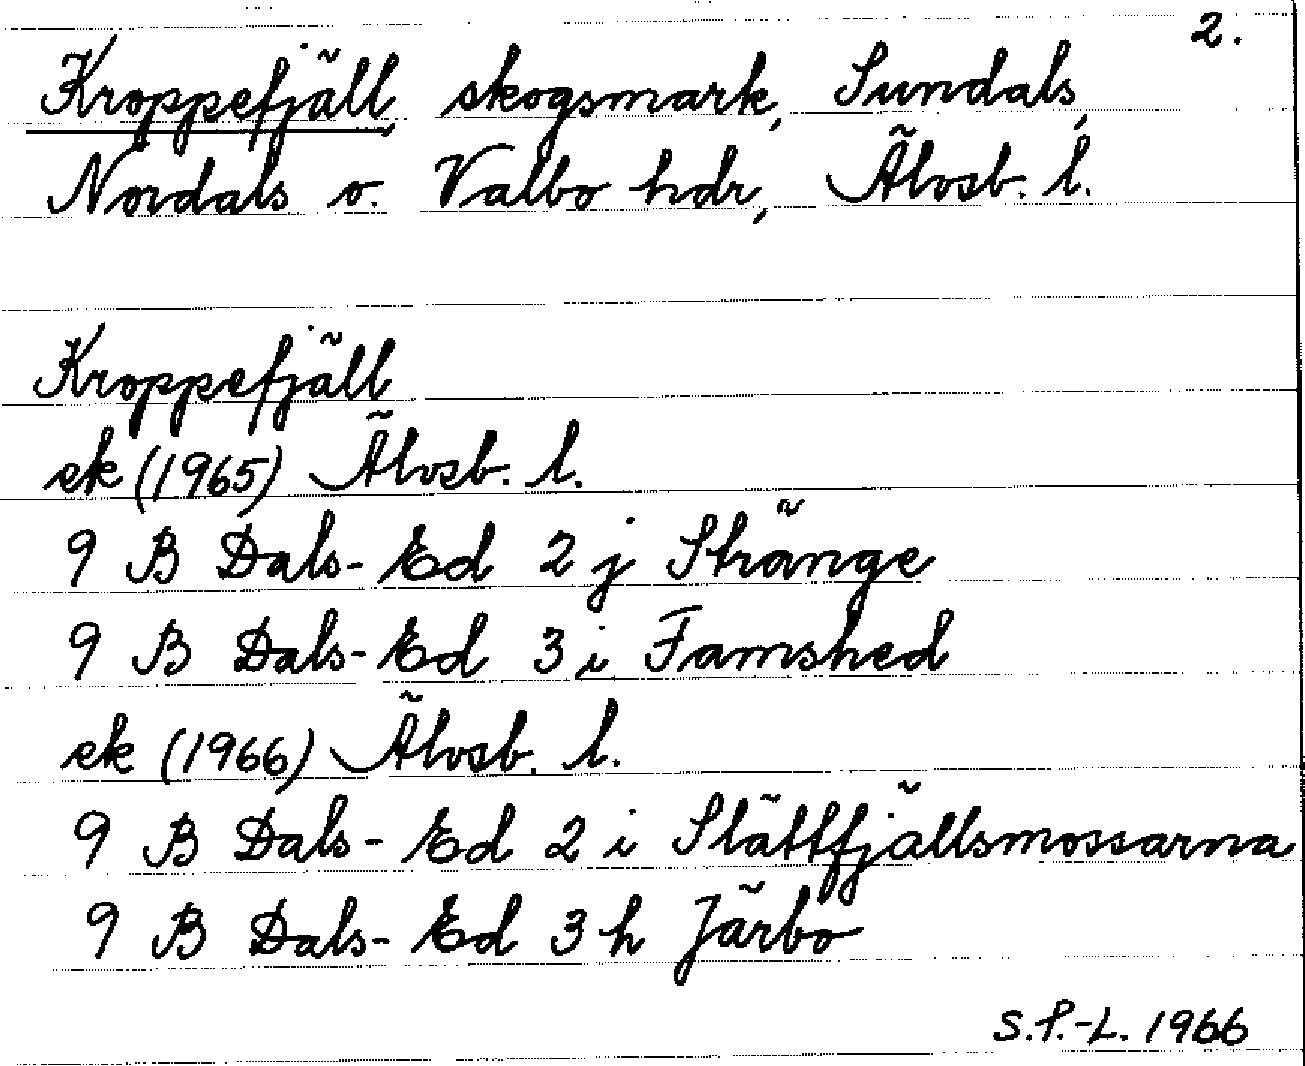 2.
Kroppefjäll, skogsmark, Sundals,
Nordals o. Valbo hdr, Älvsb. l.
Kroppefjäll
ek (1965) Älvsb. l.
9 B Dals-Ed 2 j Stränge
9 B Dals-Ed 3 i Famshed
ek (1966) Älvsb. l.
9 B Dals-Ed 2 i Slättfjällsmossarna
9 B Dals-Ed 3 h Järbo
S.P.-L. 1966